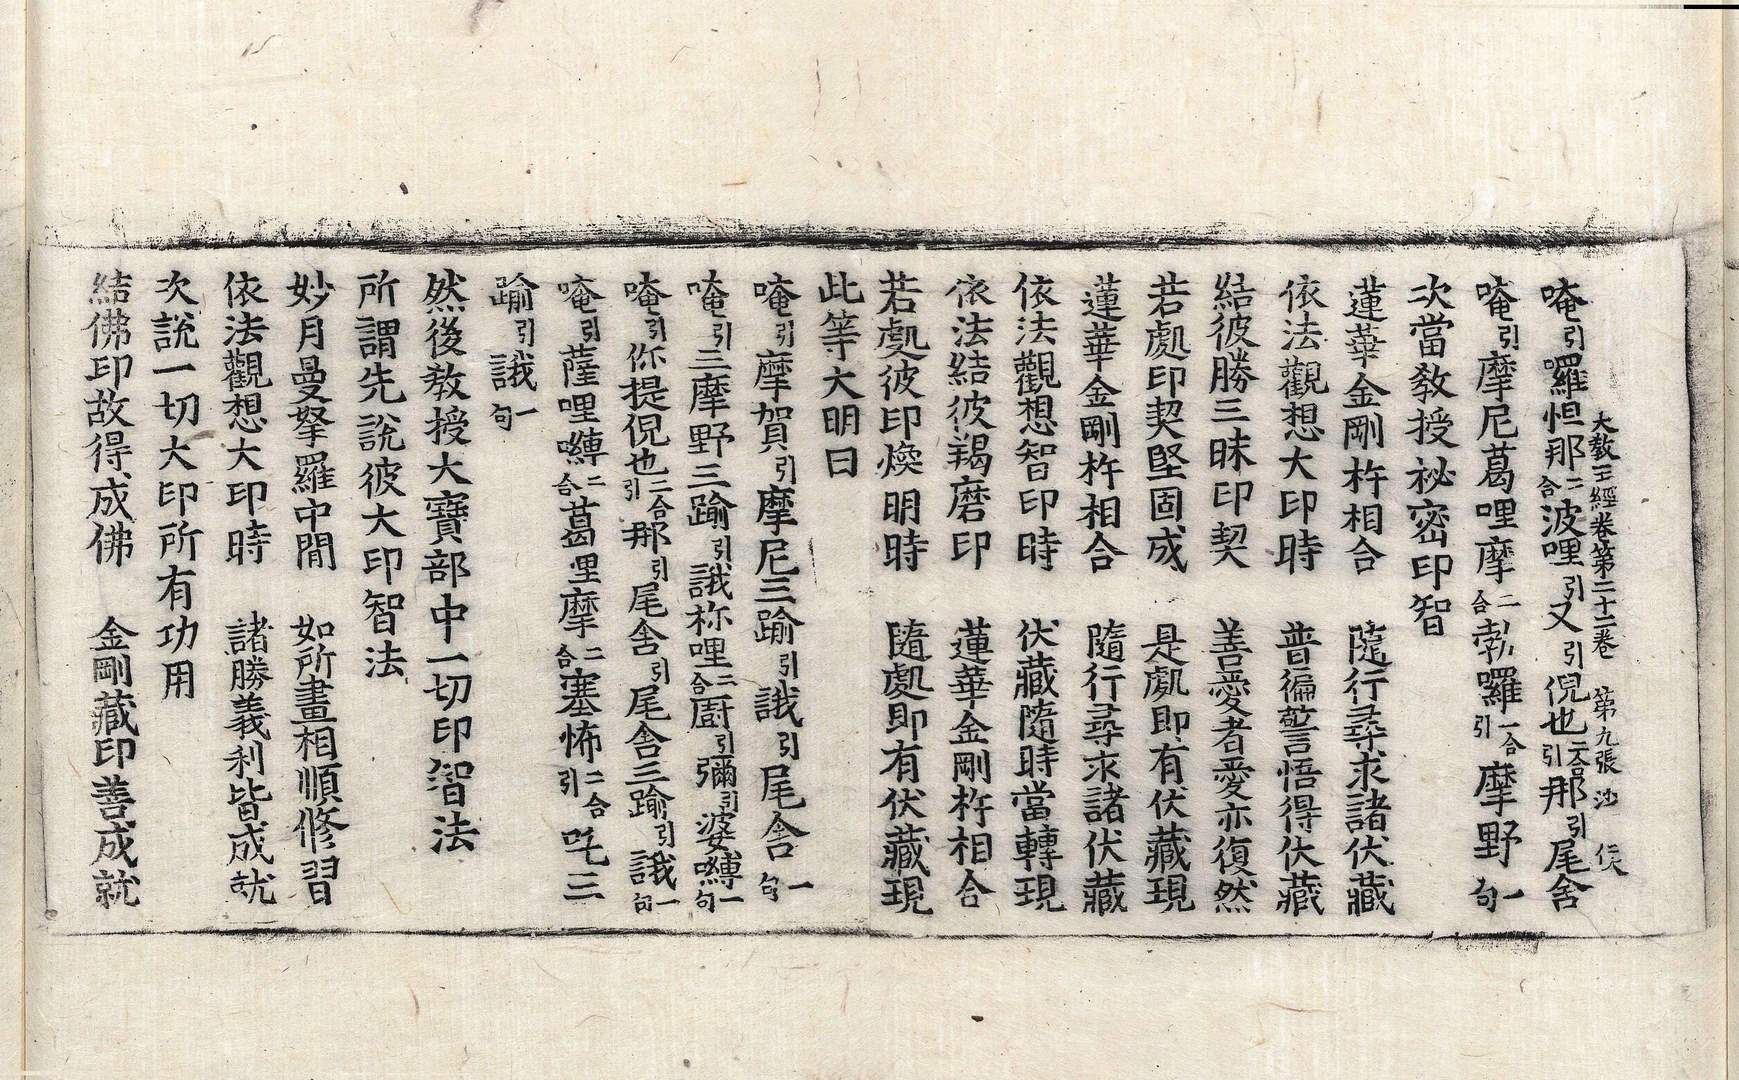 大教王經卷第二十二卷　第九張　沙
唵引囉怛那二合波哩引又引倪也二合引那引尾舍
唵引摩尼葛哩摩二合勃囉一合引摩野一句
次當教授祕密印智
蓮華金剛杵相合　隨行尋求諸伏藏
依法觀想大印時　普徧警悟得伏藏
結彼勝三昧印契　善愛者愛亦復然
若處印契堅固成　是處即有伏藏現
蓮華金剛杵相合　隨行尋求諸伏藏
依法觀想智印時　伏藏隨時當轉現
依法結彼羯磨印　蓮華金剛杵相合
若處彼印煥明時　隨處即有伏藏現
此等大明曰
唵引摩賀引摩尼三踰引誐引尾舍一句
唵引三摩野三踰引誐祢哩二合廚引彌引婆嚩一句
唵引你提倪也二合引那引尾舍引尾舍三踰引誐一句
唵引薩哩嚩二合葛哩摩二合塞怖二合引吒三
踰引誐一句
然後教授大寶部中一切印智法
所謂先說彼大印智法
妙月曼拏羅中間　如所畫相順修習
依法觀想大印時　諸勝義利皆成就
次說一切大印所有功用
結佛印故得成佛　金剛藏印善成就